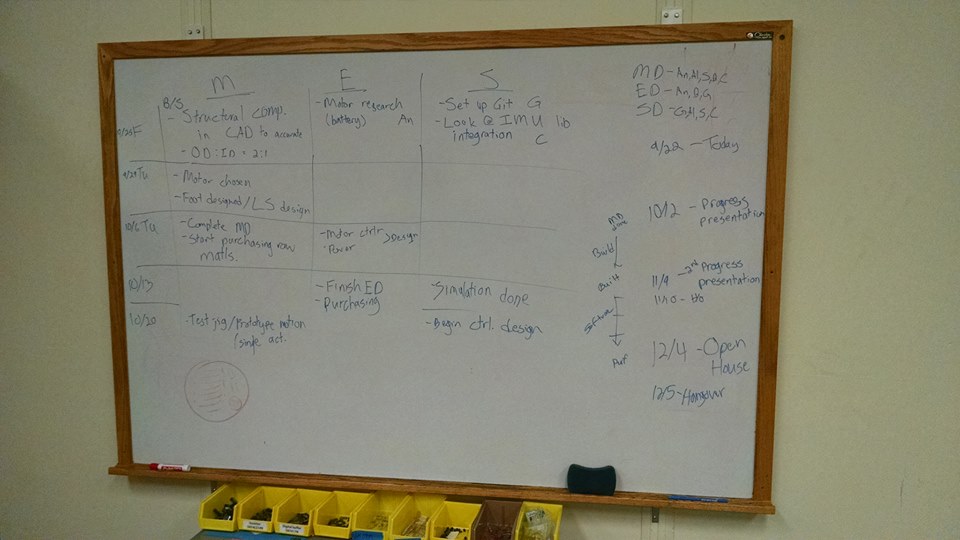 M E S
B/S
9/25 F
- Structural comp.
in CAD to accurate
- OD:ID = 2:1
- Motor research
(battery) An
- Set up Git G
- Look @ IMU lib
integration C
9/29 Tu
- Motor chosen
- Foot designed/LS design
10/6 Tu
- Complete MD
- Start purchasing raw
matls.
- Motor ctrlr
- Power
> Design
10/13
- Finish ED
- Purchasing
- Simulation done
10/20
- Test jig/Prototype motion
(single act.
- Begin ctrl. design
MD - An,Al,S,D,C
ED - An,D,G
SD - G,Al,S,C
9/22 - Today
10/2 - Progress
presentation
11/9 - 2nd Progress
presentation
11/10 -
12/4 - Open
House
12/5 - Hangover
MD
done
Build
Built
Software